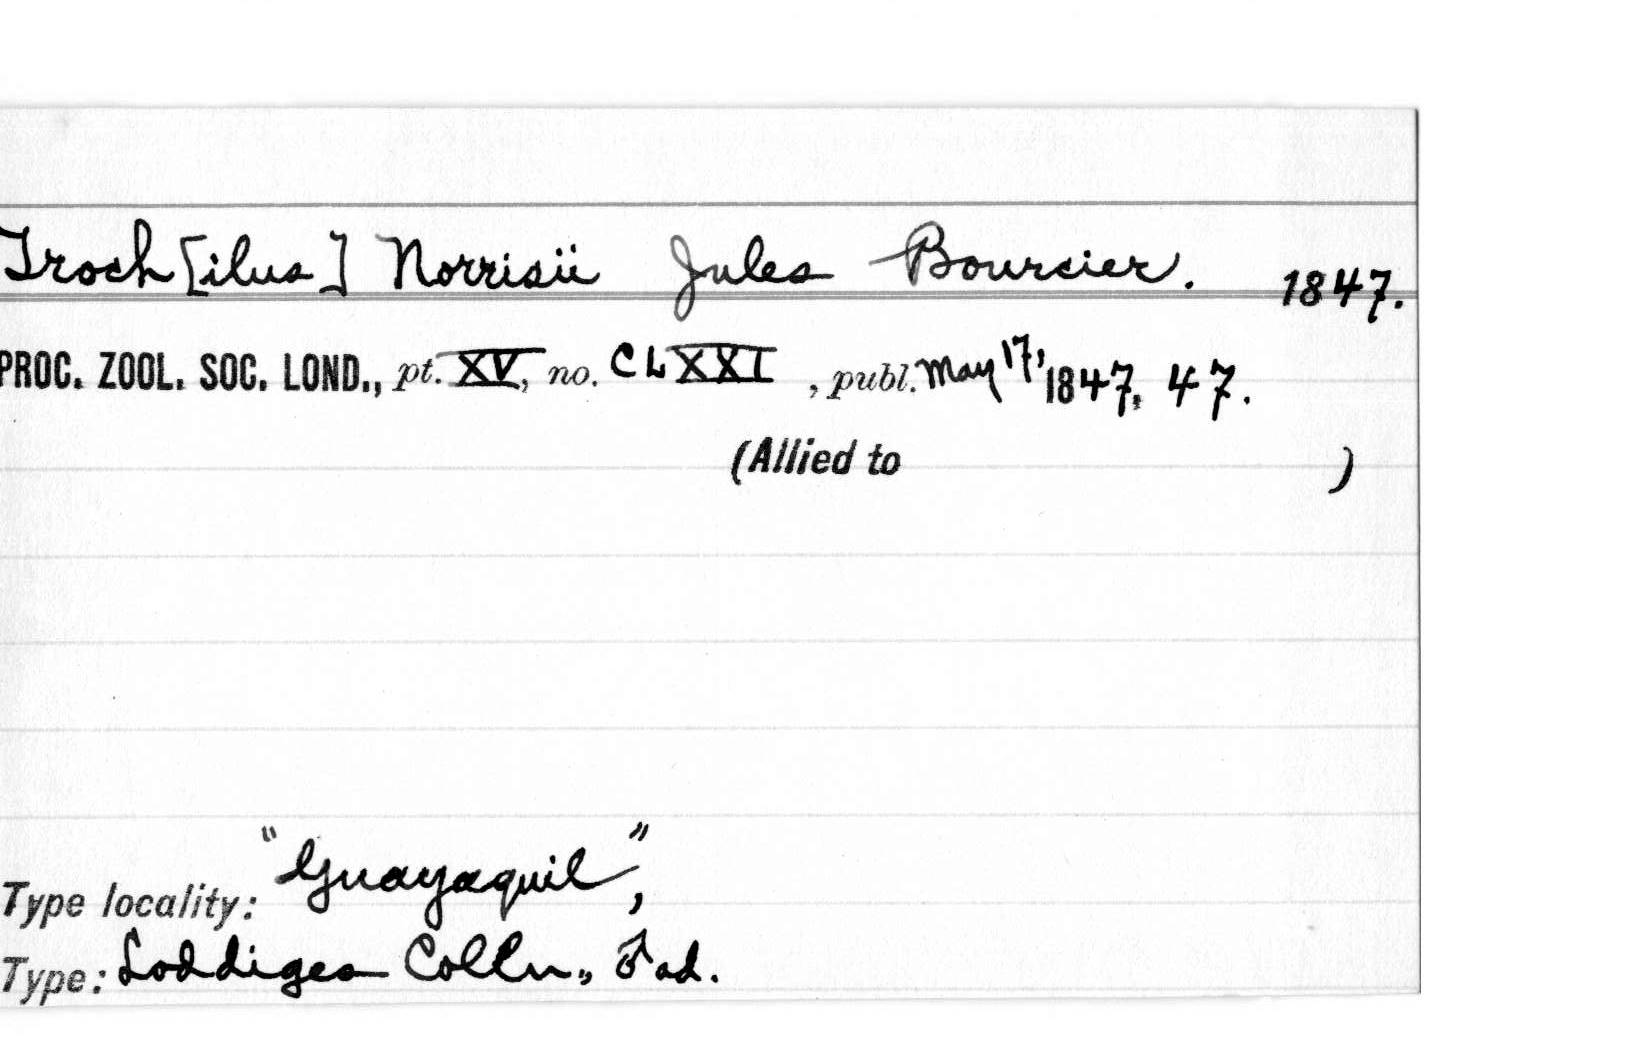 Troch[ilus] Norrisii Jules Bourcier. 1847.
PROC. ZOOL. SOC. LOND., pt. XV, no. CLXXI, publ. May 17, 1847, 47.
(Allied to )
Type locality: "Guayaquil",
Type: Loddiges Colln., ♂ ad.